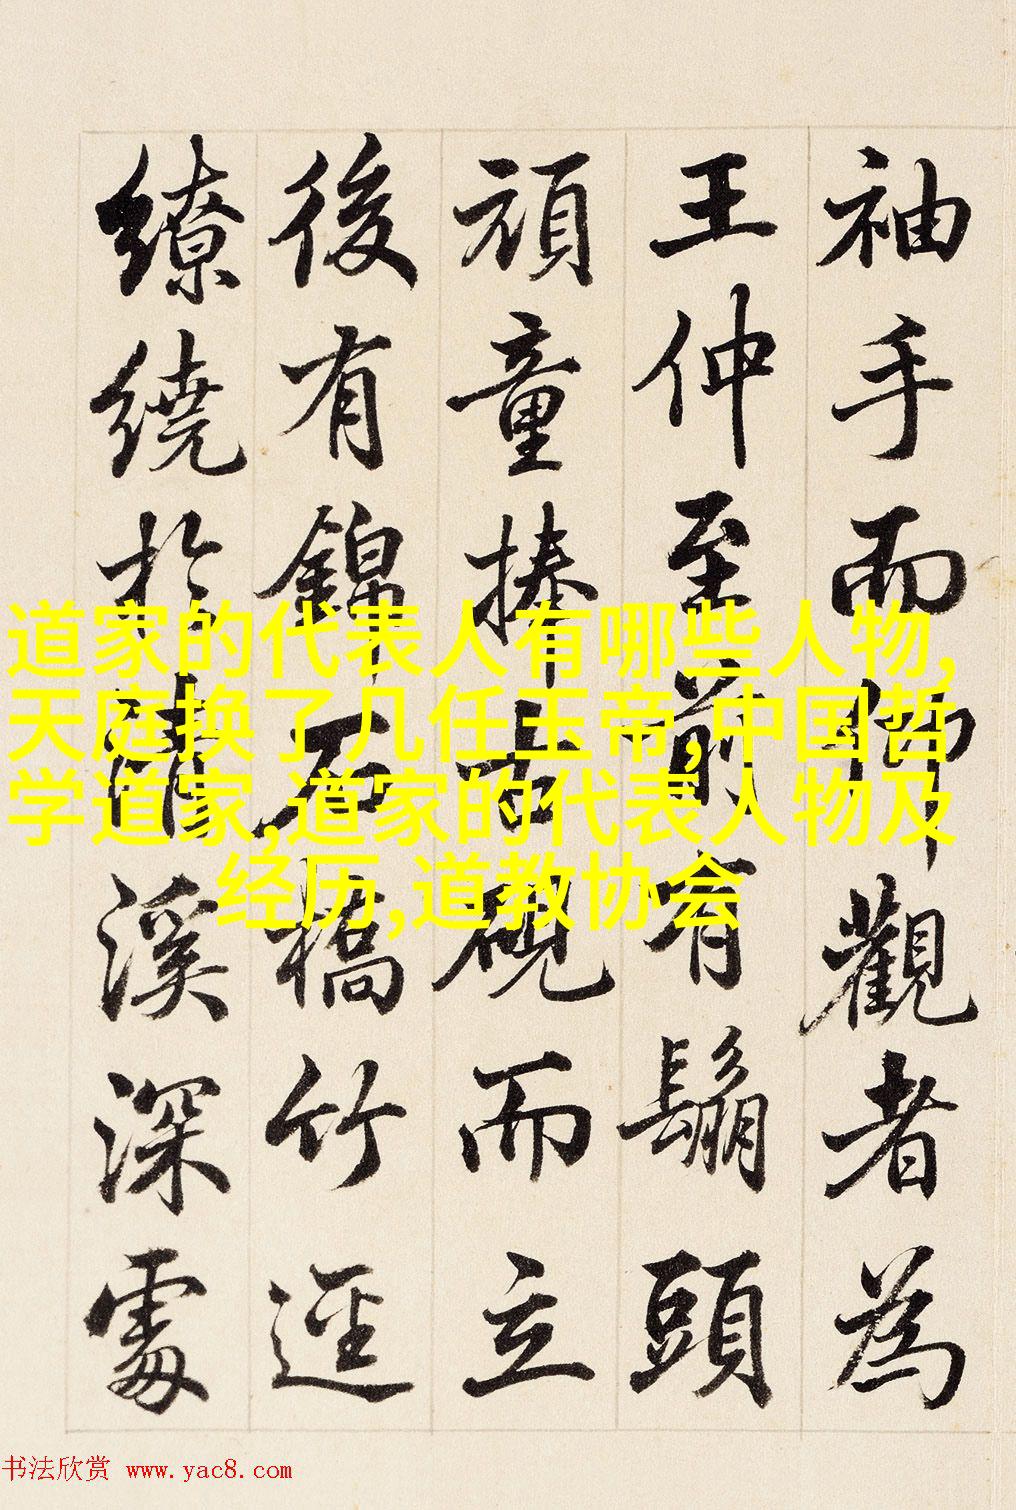 袖手而仰觀者為
王仲至前有鬅頭
頑童捧古硯而立
後有錦石橋竹逕
繚繞於清溪深處
道家的代表人有哪些人物,
天庭换了几任玉帝,中国哲
学道家,道家的代表人物及
经历,道教协会
书法欣赏 www.yac8.com